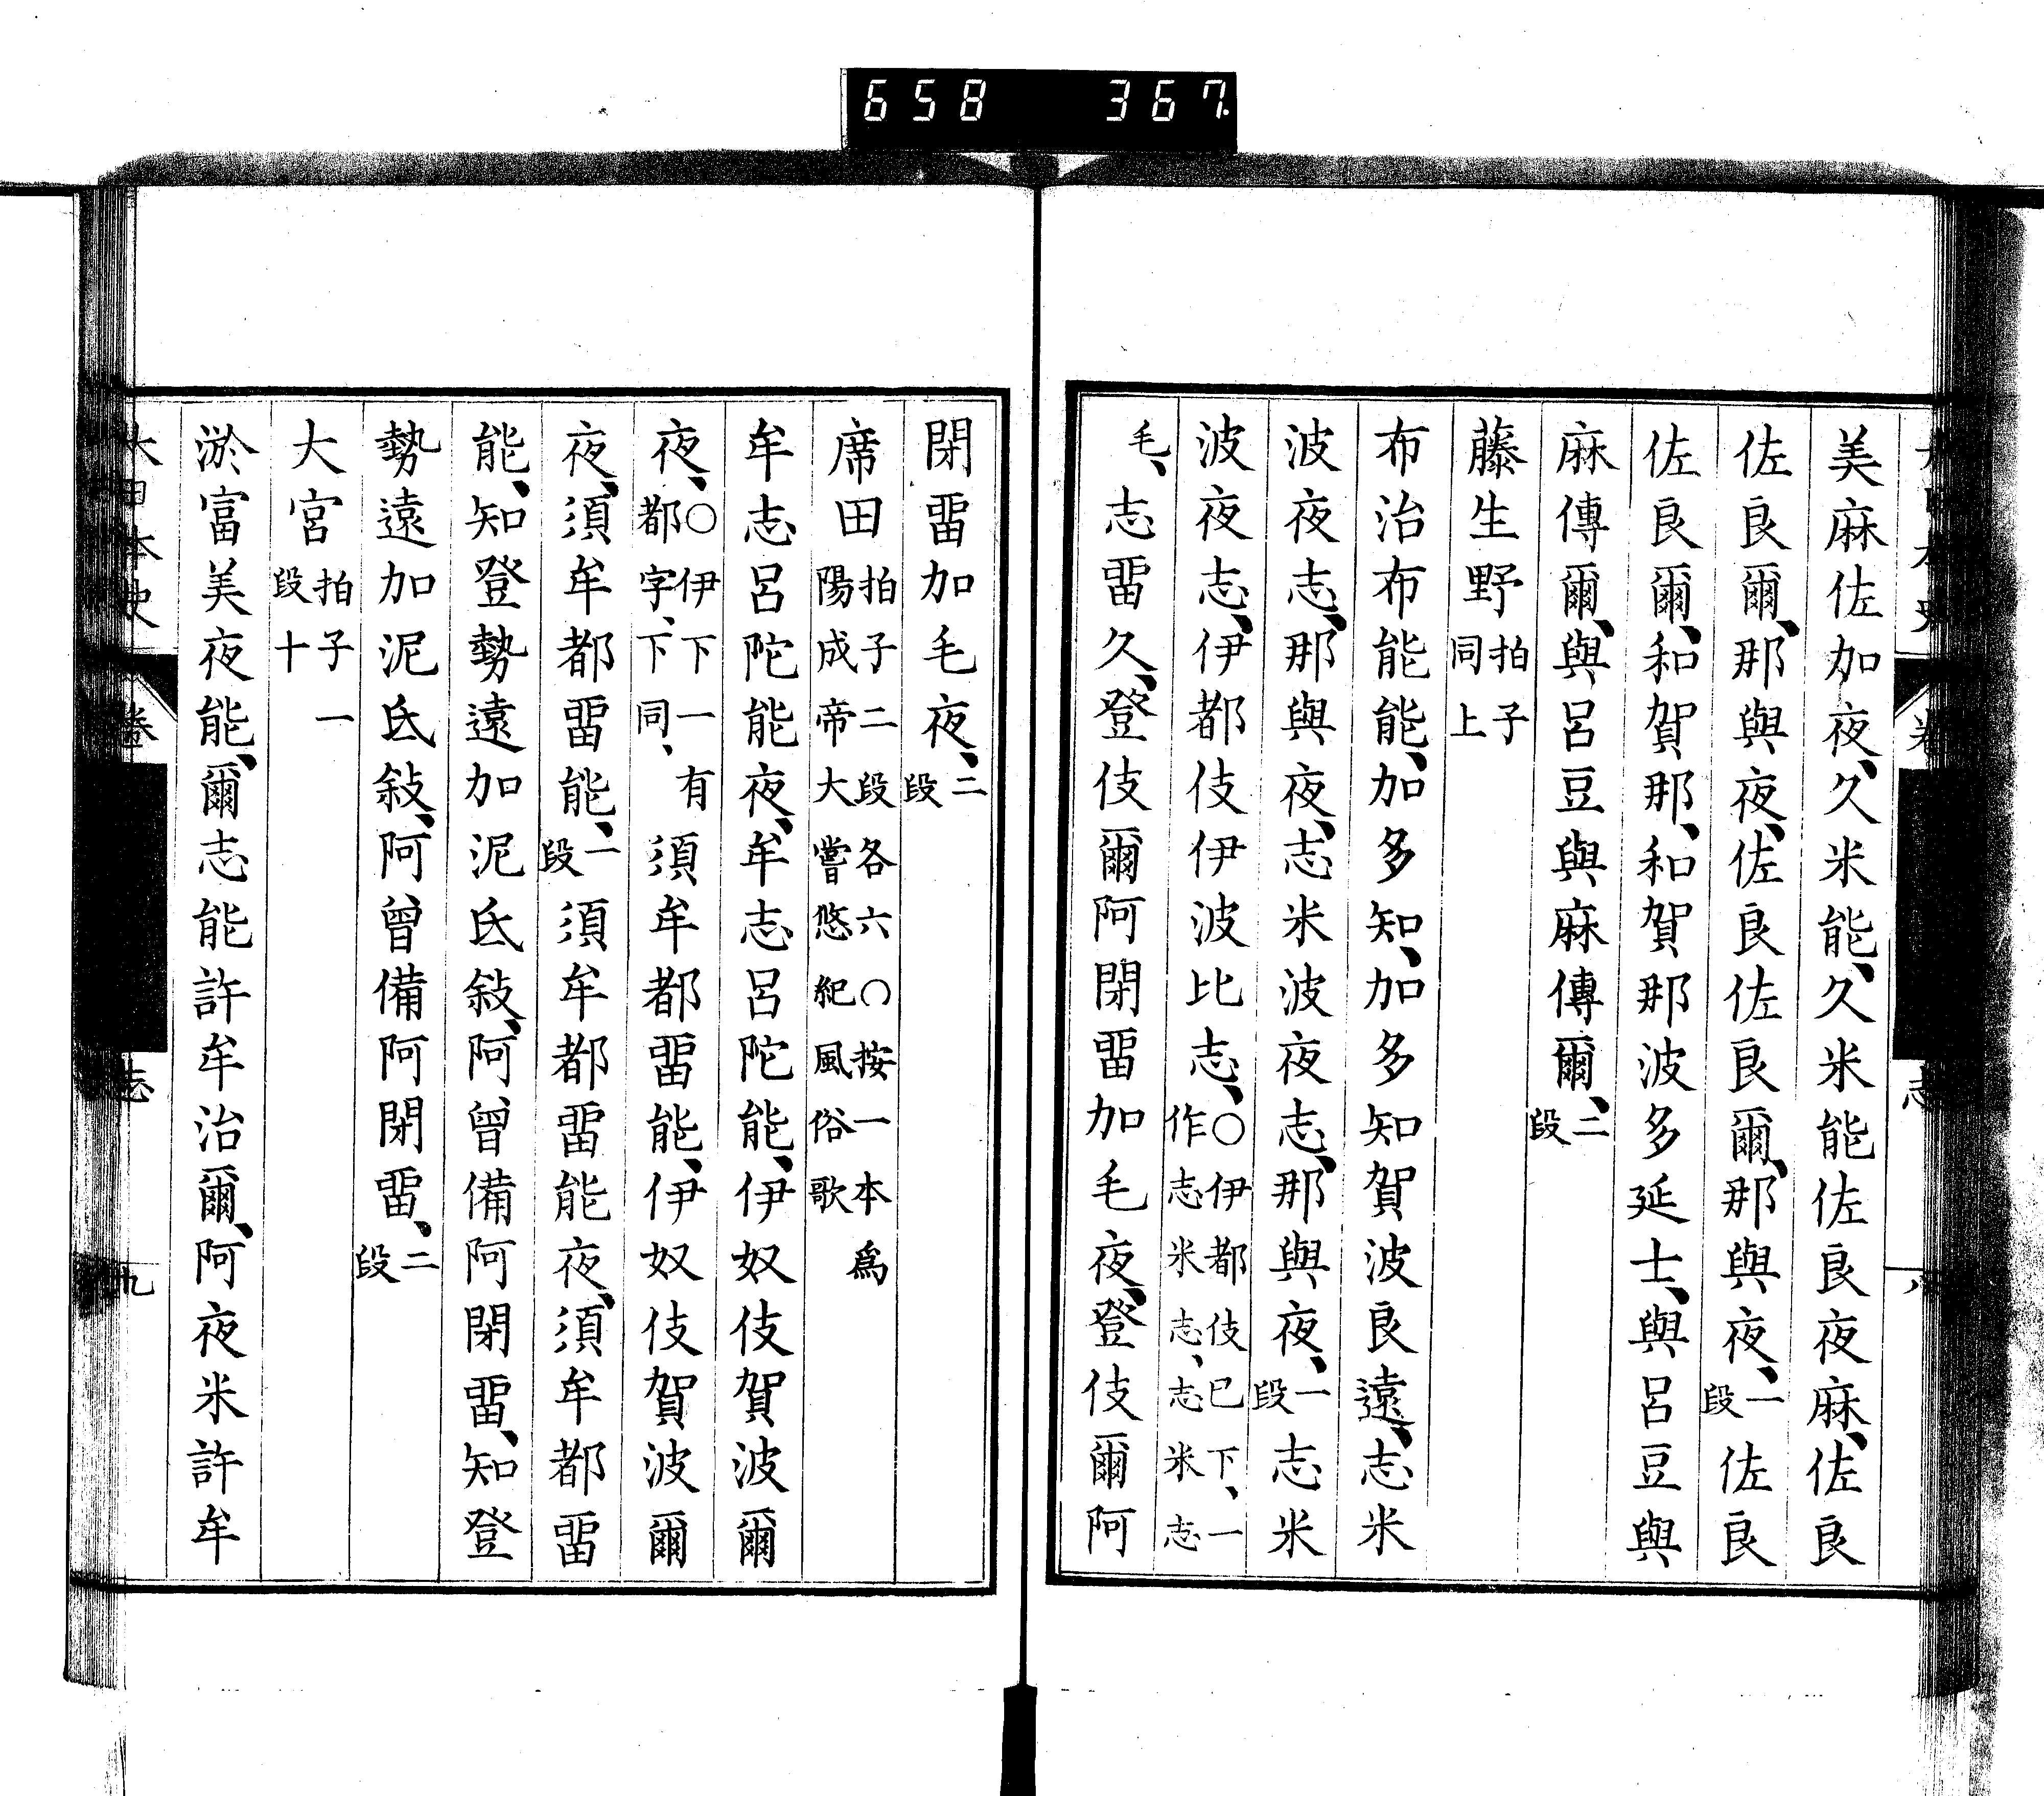 658 367
美麻佐加夜、久米能、久米能佐良夜麻、佐良
佐良爾、那與夜、佐良佐良爾、那與夜、一段 佐良
佐良爾、和賀那、和賀那波多延士、與呂豆與
麻傳爾、與呂豆與麻傳爾、二段
藤生野 拍子同上
布治布能能、加多知、加多知賀波良遠、志米
波夜志、那與夜、志米波夜志、那與夜、一段 志米
波夜志、伊都伎伊波比志、○伊都伎已下、一作志米志、志米志
毛、志畱久、登伎爾阿閇畱加毛夜、登伎爾阿
閇畱加毛夜、二段
席田 拍子二段各六○按一本爲陽成帝大嘗悠紀風俗歌
牟志呂陀能夜、牟志呂陀能、伊奴伎賀波爾
夜、○伊下一有都字、下同、須牟都畱能、伊奴伎賀波爾
夜、須牟都畱能、一段 須牟都畱能夜、須牟都畱
能、知登勢遠加泥氐敍、阿曾備阿閇畱、知登
勢遠加泥氐敍、阿曾備阿閇畱、二段
大宮 拍子一段十
淤富美夜能、爾志能許牟治爾、阿夜米許牟
大日本史 卷 志 九